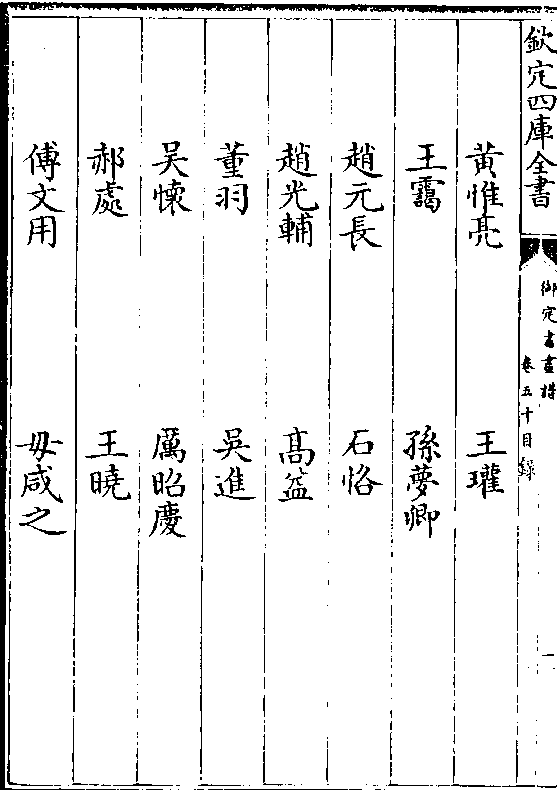 欽定四庫全書
御定書畫譜
卷五十目録
一
黄惟亮　王瓘
王靄　孫夢卿
趙元長　石恪
趙光輔　髙益
董羽　吳進
吴懷　厲昭慶
郝處　王曉
傅文用　毋咸之